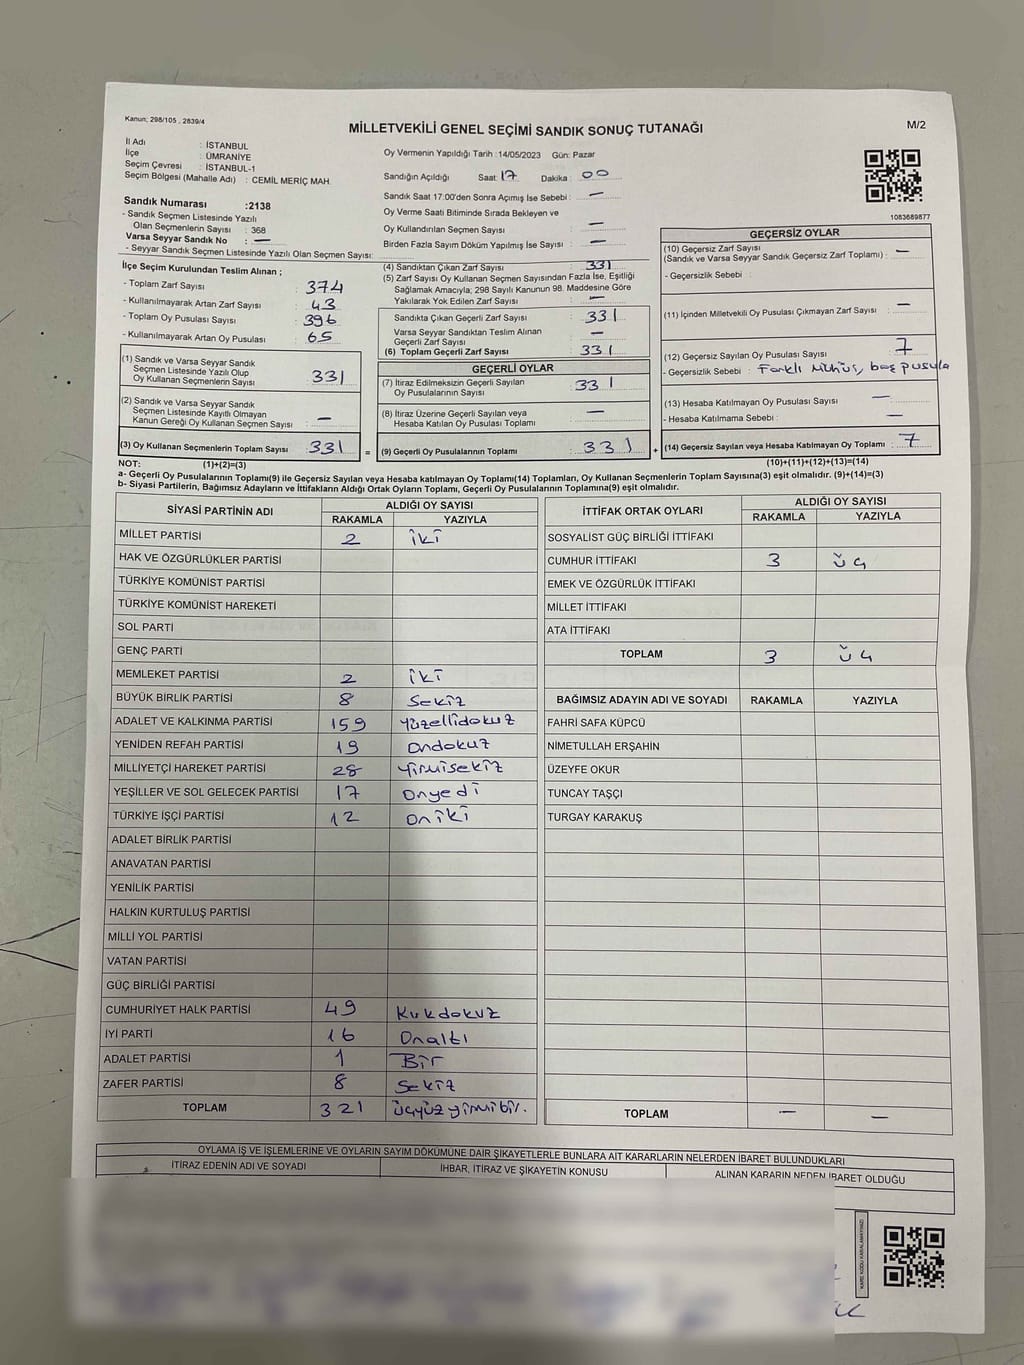 Kanun; 298/105 , 2839/4
MİLLETVEKİLİ GENEL SEÇİMİ SANDIK SONUÇ TUTANAĞI
M/2
İl Adı : İSTANBUL
İlçe : ÜMRANİYE
Seçim Çevresi : İSTANBUL-1
Seçim Bölgesi (Mahalle Adı) : CEMİL MERİÇ MAH.
Oy Vermenin Yapıldığı Tarih : 14/05/2023 Gün: Pazar
Sandığın Açıldığı Saat: 17 Dakika : 00
Sandık Saat 17:00'den Sonra Açımış İse Sebebi : —
Oy Verme Saati Bitiminde Sırada Bekleyen ve
Oy Kullandırılan Seçmen Sayısı : —
Birden Fazla Sayım Döküm Yapılmış İse Sayısı : —
1083689877
Sandık Numarası :2138
- Sandık Seçmen Listesinde Yazılı
Olan Seçmenlerin Sayısı : 368
Varsa Seyyar Sandık No : —
- Seyyar Sandık Seçmen Listesinde Yazılı Olan Seçmen Sayısı:
İlçe Seçim Kurulundan Teslim Alınan ;
- Toplam Zarf Sayısı : 374
- Kullanılmayarak Artan Zarf Sayısı : 43
- Toplam Oy Pusulası Sayısı : 396
- Kullanılmayarak Artan Oy Pusulası : 65
(1) Sandık ve Varsa Seyyar Sandık
Seçmen Listesinde Yazılı Olup
Oy Kullanan Seçmenlerin Sayısı : 331
(2) Sandık ve Varsa Seyyar Sandık
Seçmen Listesinde Kayıtlı Olmayan
Kanun Gereği Oy Kullanan Seçmen Sayısı : —
(3) Oy Kullanan Seçmenlerin Toplam Sayısı : 331
(4) Sandıktan Çıkan Zarf Sayısı : 331
(5) Zarf Sayısı Oy Kullanan Seçmen Sayısından Fazla İse, Eşitliği
Sağlamak Amacıyla; 298 Sayılı Kanunun 98. Maddesine Göre
Yakılarak Yok Edilen Zarf Sayısı : —
Sandıkta Çıkan Geçerli Zarf Sayısı : 331
Varsa Seyyar Sandıktan Teslim Alınan
Geçerli Zarf Sayısı : —
(6) Toplam Geçerli Zarf Sayısı : 331
GEÇERLİ OYLAR
(7) İtiraz Edilmeksizin Geçerli Sayılan
Oy Pusulalarının Sayısı : 331
(8) İtiraz Üzerine Geçerli Sayılan veya
Hesaba Katılan Oy Pusulası Toplamı : —
= (9) Geçerli Oy Pusulalarının Toplamı : 331 +
GEÇERSİZ OYLAR
(10) Geçersiz Zarf Sayısı
(Sandık ve Varsa Seyyar Sandık Geçersiz Zarf Toplamı) : —
- Geçersizlik Sebebi :
(11) İçinden Milletvekili Oy Pusulası Çıkmayan Zarf Sayısı : —
(12) Geçersiz Sayılan Oy Pusulası Sayısı : 7
- Geçersizlik Sebebi : Farklı Mühür, boş pusula
(13) Hesaba Katılmayan Oy Pusulası Sayısı : —
- Hesaba Katılmama Sebebi : —
(14) Geçersiz Sayılan veya Hesaba Katılmayan Oy Toplamı : 7
NOT: (1)+(2)=(3)
(10)+(11)+(12)+(13)=(14)
a- Geçerli Oy Pusulalarının Toplamı(9) ile Geçersiz Sayılan veya Hesaba katılmayan Oy Toplamı(14) Toplamları, Oy Kullanan Seçmenlerin Toplam Sayısına(3) eşit olmalıdır. (9)+(14)=(3)
b- Siyasi Partilerin, Bağımsız Adayların ve İttifakların Aldığı Ortak Oyların Toplamı, Geçerli Oy Pusulalarının Toplamına(9) eşit olmalıdır.
SİYASİ PARTİNİN ADI ALDIĞI OY SAYISI
RAKAMLA YAZIYLA
MİLLET PARTİSİ 2 iki
HAK VE ÖZGÜRLÜKLER PARTİSİ
TÜRKİYE KOMÜNİST PARTİSİ
TÜRKİYE KOMÜNİST HAREKETİ
SOL PARTİ
GENÇ PARTİ
MEMLEKET PARTİSİ 2 iki
BÜYÜK BİRLİK PARTİSİ 8 Sekiz
ADALET VE KALKINMA PARTİSİ 159 Yüzellidokuz
YENİDEN REFAH PARTİSİ 19 Ondokuz
MİLLİYETÇİ HAREKET PARTİSİ 28 Yirmisekiz
YEŞİLLER VE SOL GELECEK PARTİSİ 17 Onyedi
TÜRKİYE İŞÇİ PARTİSİ 12 Oniki
ADALET BİRLİK PARTİSİ
ANAVATAN PARTİSİ
YENİLİK PARTİSİ
HALKIN KURTULUŞ PARTİSİ
MİLLİ YOL PARTİSİ
VATAN PARTİSİ
GÜÇ BİRLİĞİ PARTİSİ
CUMHURİYET HALK PARTİSİ 49 Kırkdokuz
İYİ PARTİ 16 Onaltı
ADALET PARTİSİ 1 Bir
ZAFER PARTİSİ 8 Sekiz
TOPLAM 321 üçyüzyirmibir.
İTTİFAK ORTAK OYLARI ALDIĞI OY SAYISI
RAKAMLA YAZIYLA
SOSYALİST GÜÇ BİRLİĞİ İTTİFAKI
CUMHUR İTTİFAKI 3 üç
EMEK VE ÖZGÜRLÜK İTTİFAKI
MİLLET İTTİFAKI
ATA İTTİFAKI
TOPLAM 3 üç
BAĞIMSIZ ADAYIN ADI VE SOYADI RAKAMLA YAZIYLA
FAHRİ SAFA KÜPCÜ
NİMETULLAH ERŞAHİN
ÜZEYFE OKUR
TUNCAY TAŞÇI
TURGAY KARAKUŞ
TOPLAM — —
OYLAMA İŞ VE İŞLEMLERİNE VE OYLARIN SAYIM DÖKÜMÜNE DAİR ŞİKAYETLERLE BUNLARA AİT KARARLARIN NELERDEN İBARET BULUNDUKLARI
İTİRAZ EDENİN ADI VE SOYADI İHBAR, İTİRAZ VE ŞİKAYETİN KONUSU ALINAN KARARIN NEDEN İBARET OLDUĞU
KARE KODU KARALAMAYINIZ!